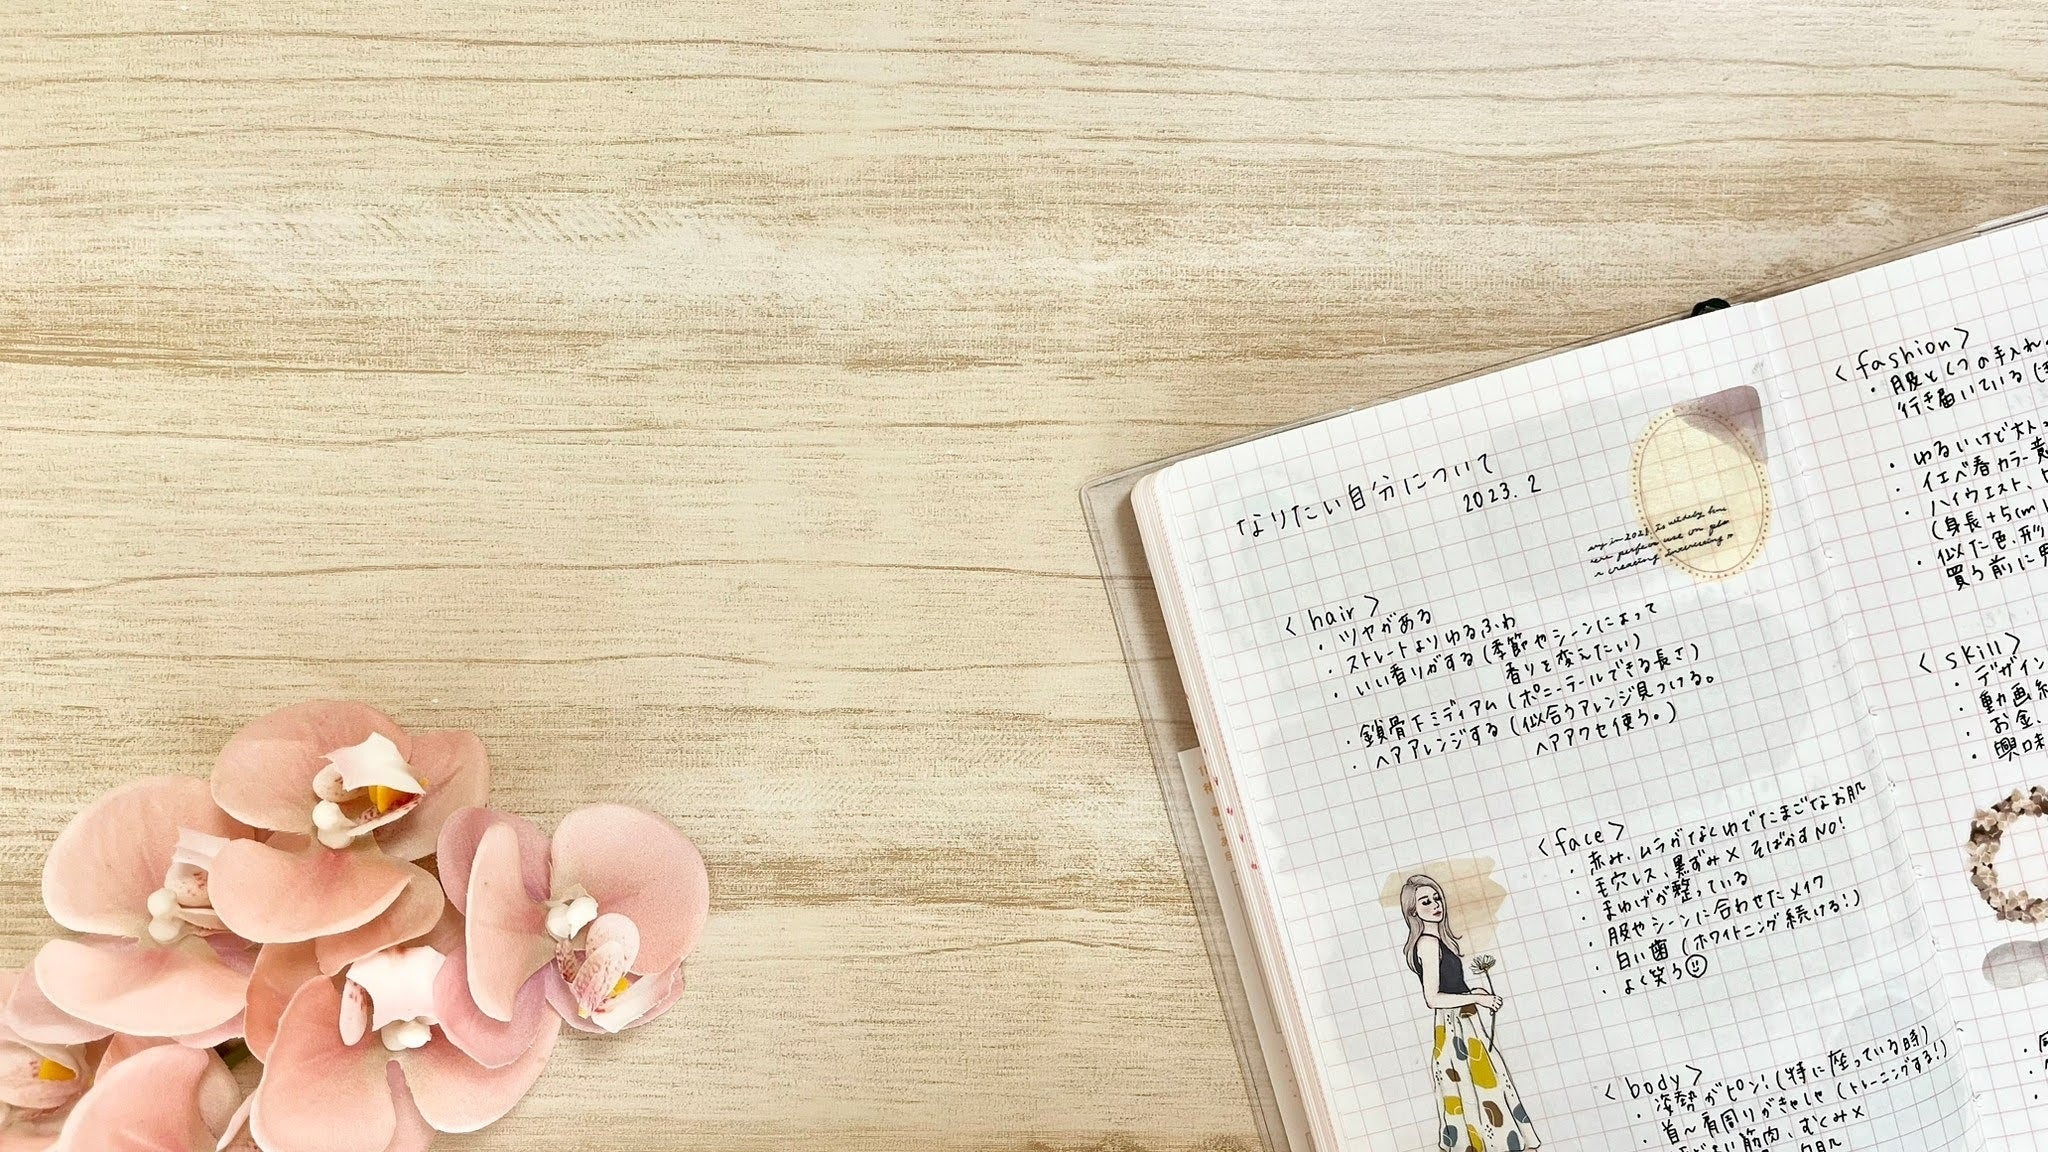 なりたい自分について
2023.2
<hair>
・ツヤがある
・ストレートよりゆるふわ
・いい香りがする(季節やシーンによって
香りを変えたい)
・鎖骨下ミディアム(ポニーテールできる長さ)
・ヘアアレンジする(似合うアレンジ見つける。
ヘアアクセ使う。)
<face>
・赤み、ムラがなくゆでたまごなお肌
・毛穴レス、黒ずみ× そばかすNO!
・まゆげが整っている
・服やシーンに合わせたメイク
・白い歯(ホワイトニング続ける!)
・よく笑う
<body>
・姿勢がピン!(特に座っている時)
・首〜肩周りがきゃしゃ(トレーニングする!)
筋肉、むくみ×
<fashion>
・服とくつの手入れ
行き届いている
・ゆるいけど大人
・イエベ春カラー意
・ハイウエスト、
(身長+5cm
・似た色、形
買う前に
<skill>
・デザイン
・動画
・お金、
・興味